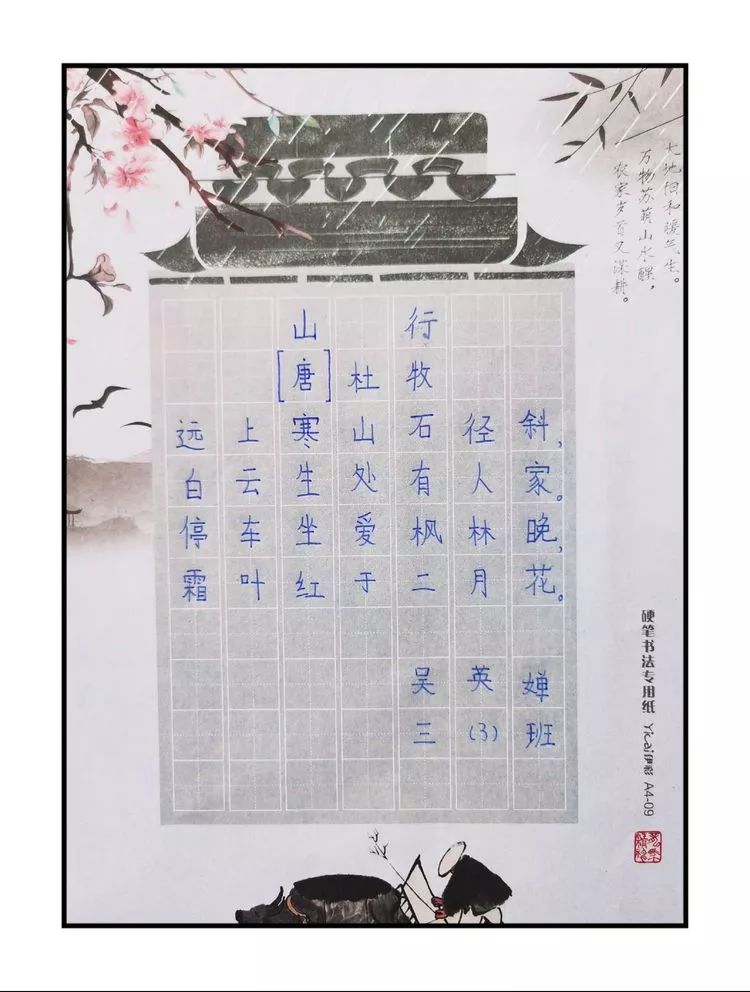 大地阳和暖气生。
万物苏萌山水醒，
农家岁首又深耕。
山行
[唐]杜牧
远上寒山石径斜，
白云生处有人家。
停车坐爱枫林晚，
霜叶红于二月花。
吴英婵
三(3)班
硬笔书法专用纸 Yicai伊彩 A4-09